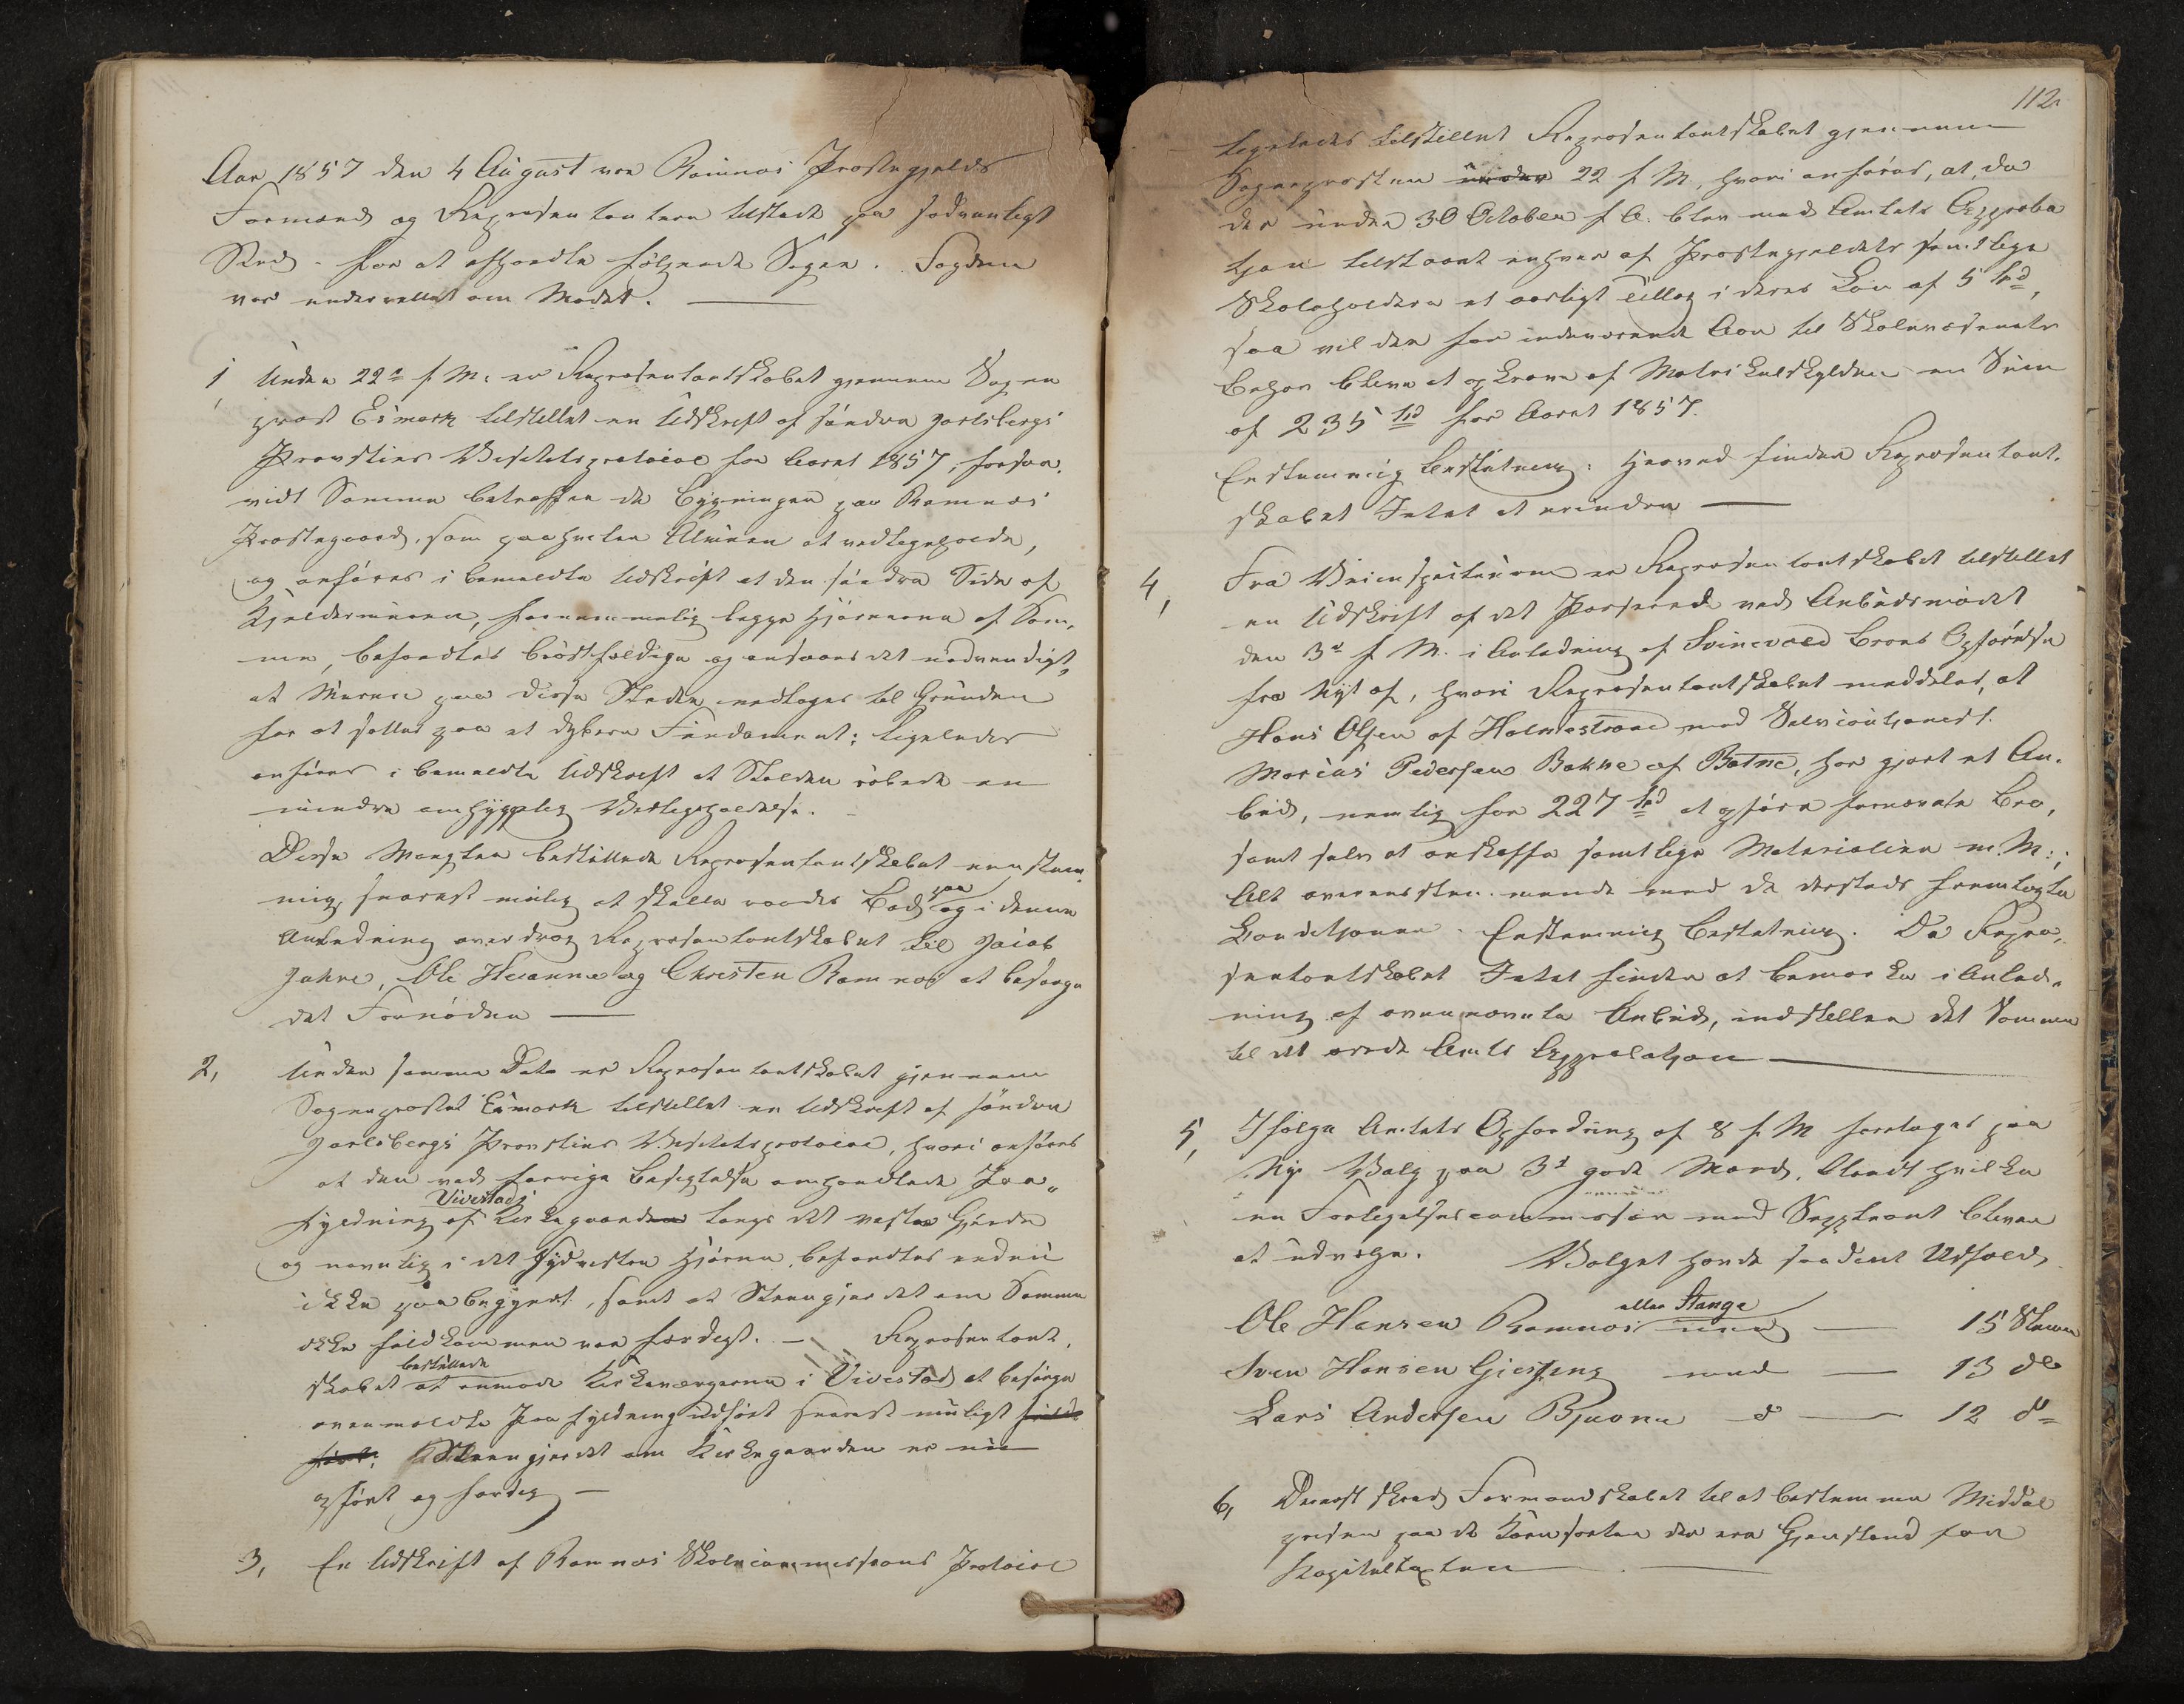 Aar 1857 den 4 August var Ramnæs Præstegjelds
Formænd og Repræsentantere tilstede paa sædvanligt
Sted for at afhandle følgende Sager. Fogden
var underrettet om Mødet.
1, Under 22de f. M. er Repræsentantskabet gjennem Sogne
præst Esmark tilstillet en Udskrift af søndre Jarlsbergs
Provsties Visitatsprotocol for Aaret 1857, forsaa-
vidt Samme betræffer de Bygninger paa Ramnæs
Præstegaard, som paahviler Almuen at vedligeholde,
og anføres i bemeldte Udskrift at den søndre Side af
Kjeldermuren, fornemmelig begge Hjørnerne af Sam-
me, befandtes brøstfældige og ansaaes det nødvendigt,
at Muren paa disse Steder nedtages til Grunden
for at sættes paa et dybere Fundament; ligeledes
anføres i bemeldte Udskrift at Stalden røbede en
mindre omhyggelig Vedligeholdelse.
Disse Mangler besluttede Repræsentantskabet eenstem-
mig snarest mulig at skulle raades Bod paa og i denne
Anledning overdrog Repræsentantskabet til Jacob
Jahre, Ole Heianne og Christen Ramnæs at besørge
det Fornødne
2, Under samme Dato er Repræsentantskabet gjennem
Sognepræst Esmark tilstillet en Udskrift af søndre
Jarlsbergs Provsties Visitatsprotocol, hvori anføres
at den ved forrige Besigtelse omhandlede Paa-
fyldning af Vivestads Kirkegaard langs det vestre Gjerde
og navnlig i det sydvestre Hjørne, befandtes endnu
ikke paabegyndt, samt at Steengjerdet om Samme
ikke fuldkommen var færdigt. — Repræsentant-
skabet besluttede at anmode Kirkeværgerne i Vivestad at besørge
ovenmeldte Paafyldning udført snarest muligt
Steengjerdet om Kirkegaarden er nu
opført og færdig —
3, En Udskrift af Ramnæs Skolecommissions Protocol
112
ligeledes tilstillet Repræsentantskabet gjennem
Sognepræsten under 22 f. M., hvori anføres, at, da
der under 30 October f. A. blev med Amtets Approba
tjon tilstaaet enhver af Præstegjeldets samtlige
Skoleholdere et aarligt Tillæg i deres Løn af 5 Spd,
saa vil der for indeværende Aar til Skolevæsenets
Behov blive at opkræve af Matrikulskylden en Sum
af 235 Spd for Aaret 1857.
Enstemmig Beslutning: Herved finder Repræsentant-
skabet Intet at erindre
4, Fra Veiinspecteuren er Repræsentantskabet tilstillet
en Udskrift af det Passerede ved Anbudsmødet
den 3die f. M. i Anledning af Svinevold Broes Opførelse
fra Nyt af, hvori Repræsentantskabet meddeles, at
Hans Olsen af Holmestrand med Selvcautionist
Marius Pedersen Bakke af Botne, har gjort et An-
bud, nemlig for 227 Spd at opføre fornævnte Bro,
samt selv at anskaffe samtlige Materialier m. M.;
Alt overensstemmende med de dersteds fremlagte
Konditjoner. Enstemmig Beslutning: Da Repræ-
sentantskabet Intet finder at bemærke i Anled-
ning af ovennævnte Anbud, indstilles det Samme
til det ærede Amts Approbatjon
5, Ifølge Amtets Opfordring af 8 f. M. foretages paa
Ny Valg paa 3de gode Mænd, blandt hvilke
en Forligelsescommissær med Suppleant bliver
at udvælge. Valget havde saadant Udfald,
Ole Hansen Ramnæs eller Stange — 15 Stemmer
Sven Hansen Gjerpeng med — 13 do
Lars Andersen Bjuone do — 12 do
6, Dernæst skred Formandskabet til at bestemme Middel
prisen paa de Kornsorter der ere Gjenstand for
Kapitelstaxten